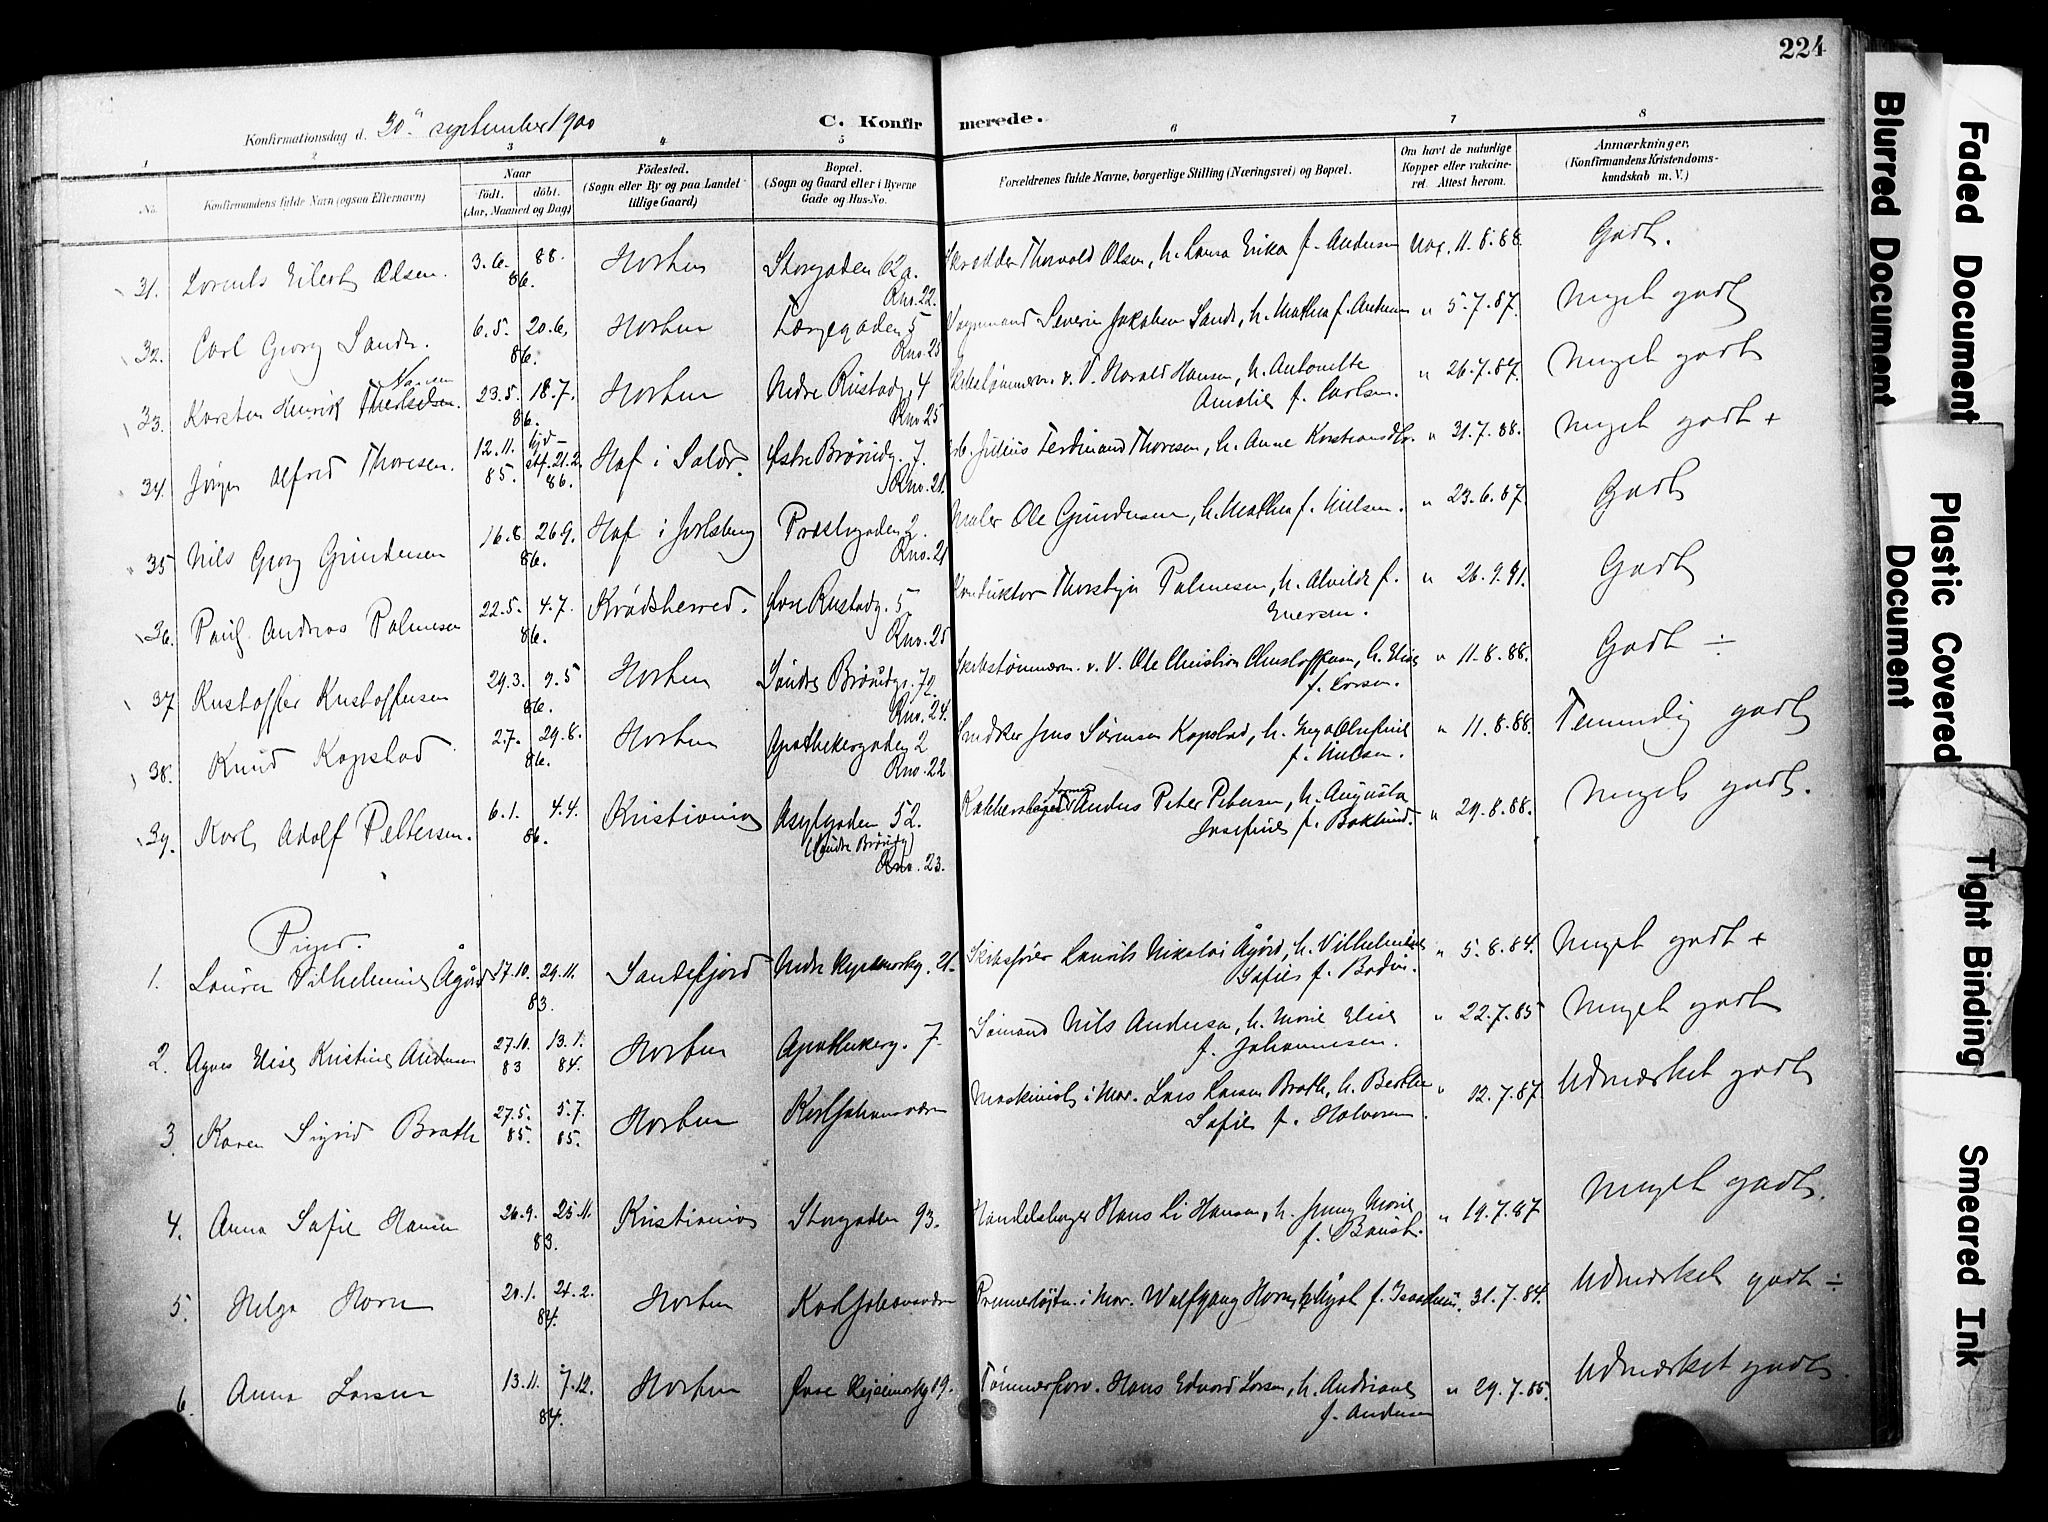 224
Konfirmationsdag d. 30. september 1900
C. Konfirmerede.
1 2 3 4 5 6 7 8
No.
Konfirmandens fulde Navn (ogsaa Efternavn)
Naar
født. døbt.
(Aar, Maaned og Dag)
Fødested.
(Sogn eller By og paa Landet
tillige Gaard)
Bopæl.
(Sogn og Gaard eller i Byerne
Gade og Hus-No.
Forældrenes fulde Navne, borgerlige Stilling (Næringsvei) og Bopæl.
Om havt de naturlige
Kopper eller vakcine-
ret. Attest herom.
Anmærkninger,
(Konfirmandens Kristendoms-
kundskab m. V.)
31. Lorents Eilert Olsen. 3.6. 88. 86. Horten Storgaden 62a. Rno. 22. Skrædder Thorvald Olsen, h. Laura Erika f. Andersen 11.8.88. Godt.
32. Carl Georg Sande. 6.5. 20.6. 86. Horten Færgegaden 5 Rno. 25 Vognmand Severin Jakobsen Sande, h. Mathea f. Andersen " 5.7.87. Meget godt
33. Karsten Henrik Hansen 23.5. 18.7. 86. Horten Nedre Rustadg. 4 Rno. 25 Skibstømmerm. v. V. Harald Hansen, h. Antonette
Amalie f. Carlsen. " 26.7.87. Meget godt
34. Jørgen Alfred Thoresen. 12.11. 85. hjd- stf. 21.2. 86. Hof i Solør. Østre Brårudg. 7. Rno. 21. Arb. Julius Ferdinand Thoresen, h. Anne Kristiansdtr. " 31.7.88. Meget godt +
35 Nils Georg Gundersen 16.8. 26.9. 86. Hof i Jarlsberg Præstegaden 2. Rno. 21 Maler Ole Gundersen, h. Mathea f. Nielsen. " 23.6.87 Godt
36. Paul Andreas Palmesen 22.5. 4.7. 86. Krødsherred. Øvre Rustadg. 5. Rno. 25 Konduktør Thorstein Palmesen, h. Alvilde f.
Eversen. " 26.9.91. Godt
37 Kristoffer Kristoffersen 29.3. 9.5 86. Horten Søndre Brårudg. 72. Rno. 24. Skibstømmerm. v. V. Ole Christian Christoffersen, h. Elise
f. Larsen. " 11.8.88. Godt ÷
38. Knud Kopstad 2.7. 29.8. 86. Horten Apothekergaden 2 Rno. 22 Snedker Jens Sørensen Kopstad, h. Inga Olufine
f. Nielsen. " 11.8.88. Temmelig godt
39. Karl Adolf Pettersen. 6.1. 4.4. 86. Kristiania Asylgaden 52. (Søndre Brårudg) Rno. 23. Kobberslager Anders Peter Petersen, h. Augusta
Josefine f. Boklund. " 29.8.88. Meget godt.
Piger.
1. Laura Vilhelmine Ågård 17.10. 29.11. 83. Sandefjord Nedre Keisemarkg. 21. Skibsfører Laurits Nikolai Ågård, h. Vilhelmine
Sofie f. Bodin. " 5.8.84. Meget godt +
2. Agnes Elise Kristine Andersen 27.10. 83 13.1. 84. Horten Apothekerg. 7. Sømand Nils Andersen, h. Marie Elise
f. Johannesen. " 22.7.85 Meget godt
3. Karen Sigrid Brath 27.5. 85. 5.7. 85. Horten Karljohansværn Maskinist i Mar. Lars Larsen Brath, h. Berthe
Sofie f. Halvorsen " 12.7.87. Udmærket godt
4. Anna Sofie Hansen 26.9. 25.11. 83. Kristiania Storgaden 93. Handelsborger Hans Li Hansen, h. Jenny Marie
f. Bausk. " 19.7.87. Meget godt.
5. Helga Horn 20.1. 24.2. 84. Horten Karljohansværn Premierløjtn. i Mar. Wolfgang Horn, f. Isachsen. 31.7.84. Udmærket godt ÷
6. Anna Larsen 13.11. 7.12. 84. Horten Øvre Keisemarkg 19. Tømmerforv. Hans Edvard Larsen, h. Andriane
f. Andersen " 29.7.85. Udmærket godt.
Faded Document
Blurred Document
Plastic Covered
Document
Tight Binding
Smeared Ink